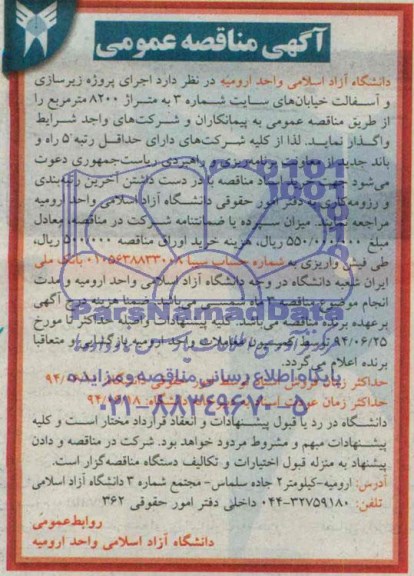 آگهی مناقصه عمومی
دانشگاه آزاد اسلامی واحد ارومیه در نظر دارد اجرای پروژه زیرسازی
و آسفالت خیابان‌های سایت شماره ۳ به متراژ ۸۲۰۰ مترمربع را
از طریق مناقصه عمومی به پیمانکاران و شرکت‌های واجد شرایط
واگذار نماید. لذا از کلیه شرکت‌های دارای حداقل رتبه ۵ راه و
باند جدید از معاونت برنامه‌ریزی و راهبردی ریاست‌جمهوری دعوت
می‌شود جهت اسناد مناقصه با در دست داشتن آخرین رتبه‌بندی
و رزومه‌کاری به دفتر امور حقوقی دانشگاه آزاد اسلامی واحد ارومیه
مراجعه نمایند. میزان سپرده یا ضمانتنامه شرکت در مناقصه، معادل
مبلغ ریال، هزینه خرید اوراق مناقصه ریال،
طی فیش واریزی به شماره حساب سیبا بانک ملی
ایران شعبه دانشگاه در وجه دانشگاه آزاد اسلامی واحد ارومیه و مدت
انجام موضوع مناقصه ۳ ماه می‌باشد. ضمنا هزینه درج آگهی
برعهده برنده مناقصه می‌باشد. کلیه پیشنهادات واصله حداکثر تا مورخ
۹۴/۰۶/۲۵ توسط کمیسیون معاملات واحد ارومیه بازگشایی و متعاقبا
برنده اعلام می‌گردد.
ParsNamadData
حداکثر زمان فروش اسناد توسط امور حقوقی دانشگاه:
پایگاه اطلاع رسانی مناقصه و مزایده
حداکثر زمان عودت اسناد به دانشگاه:
۰۲۱-۸۸۳۴۹۶۷۰-۵
دانشگاه در رد یا قبول پیشنهادات و انعقاد قرارداد مختار است و کلیه
پیشنهادات مبهم و مشروط مردود خواهد بود. شرکت در مناقصه و دادن
پیشنهاد به منزله قبول اختیارات و تکالیف دستگاه مناقصه‌گزار است.
آدرس: ارومیه-کیلومتر۲ جاده سلماس- مجتمع شماره ۳ دانشگاه آزاد اسلامی
تلفن: ۳۲۷۵۹۱۸۰-۰۴۴ داخلی دفتر امور حقوقی ۳۶۲
روابط‌عمومی
دانشگاه آزاد اسلامی واحد ارومیه